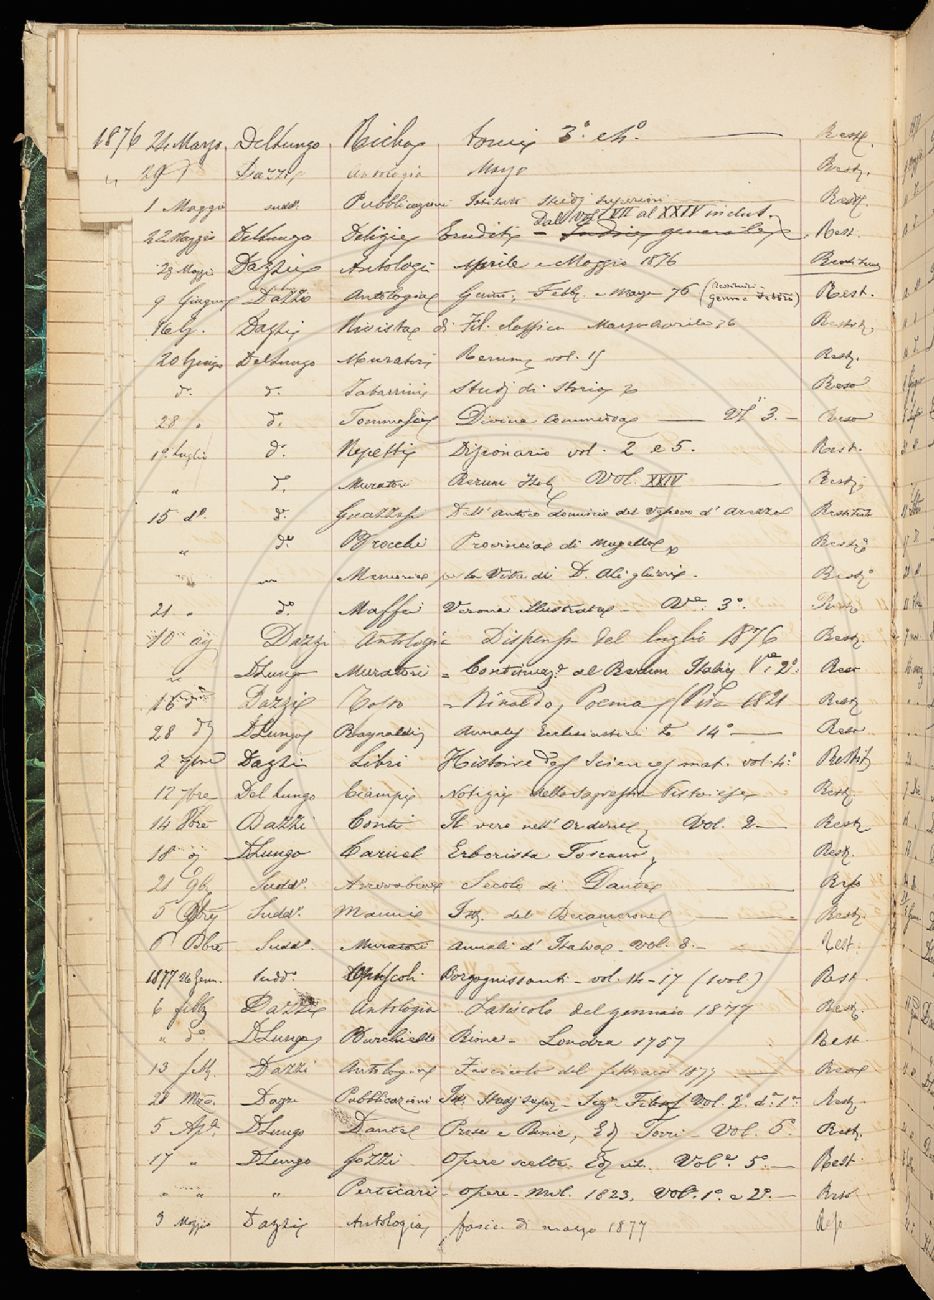 1876 24 Marzo DelLungo Richa tomi 3° e 4° — Restt.
" 29 Dazzi Antologia Marzo Restt.
1 Maggio sudd. Pubblicazioni Istituto Studj superiori Restt.
Dal Vol. VII al XXIV inclut.
22 Maggio DelLungo Delizie Eruditi = Rest.
23 Maggio Dazzi Antologia Aprile e Maggio 1876 Restituu
9 Giugno Dazzi Antologia Genn., Febb. e Marzo 76 Rest.
16 Dazzi Rivista di Fil. classica Marzo Aprile 76 Restt.
20 Giugno DelLungo Muratori Rerum vol. 15 Restt.
d.° d.° Tabarrini Studj di Storia Reso
28 " d.° Tommaseo Divina Commedia — Vol. 3. — Reso
12 Luglio d.° Repetti Dizionario vol. 2 e 5. Rest.
" d.° Muratori Rerum Ital. Vol. XXIV — Restt.
15 d.° d.° Guazzesi Dell' antico dominio del vescovo d' Arezzo Restituito
" d.° Brocchi Provincia di Mugello Restt.
" Memorie per la Vita di D. Alighieri. Restt.
21 " d.° Maffei Verona illustrata — Vol. 3°. Reso
10 ag Dazzi Antologia Dispensa del luglio 1876 Restt.
" DLungo Muratori = Continuaz. al Rerum Italic. V. 2°. Reso
16 d.° Dazzi Tasso — Rinaldo, Poema Pisa 1821 Reso
28 d.° DLungo Raynaldi Annales Ecclesiastici To 14° — Reso
2 7bre Dazzi Libri Histoire des Sciences mat. vol. 4° Restt.
12 7bre Del Lungo Ciampi Notizie della Sagrestia Pistoiese Restt.
14 8bre Dazzi Conti Il vero nell' ordine Vol. 2 — Restt.
18 DLungo Caruel Erborista Toscano Restt.
21 9b. Sudd°. Arrivabene Secolo di Dante — Reso
5 Sudd°. Mannii Ist. del Decamerone — Restt.
Xbre Sudd°. Muratori Annali d' Italia — Vol. 8. — Rest
1877 26 Genn. Sudd°. Opuscoli Borgognissanti — vol. 14-17 (1 vol) Rest
6 febb. Dazzi Antologia Fascicolo del gennaio 1877 Restt.
" d.° DLungo Burchiello Rime — Londra 1757 Rest
13 feb. Dazzi Antologia Fascicolo del febbraio 1877 — Reso
28 Mar. Dazzi Pubblicazioni Ist. Studj super. — Sez. Filosof. Vol. 2° d. 1° Restt.
5 Ap. DLungo Dante Prose e Rime, Ed. Torri — Vol. 5. Restt.
17 " DLungo Gozzi Opere scelte. Ed. cit. Vol. 5° — Rest
" " " Perticari Opere — Mil. 1823. Vol. 1° e 2° — Reso
3 Maggio Dazzi Antologia fasc. di marzo 1877 Reso